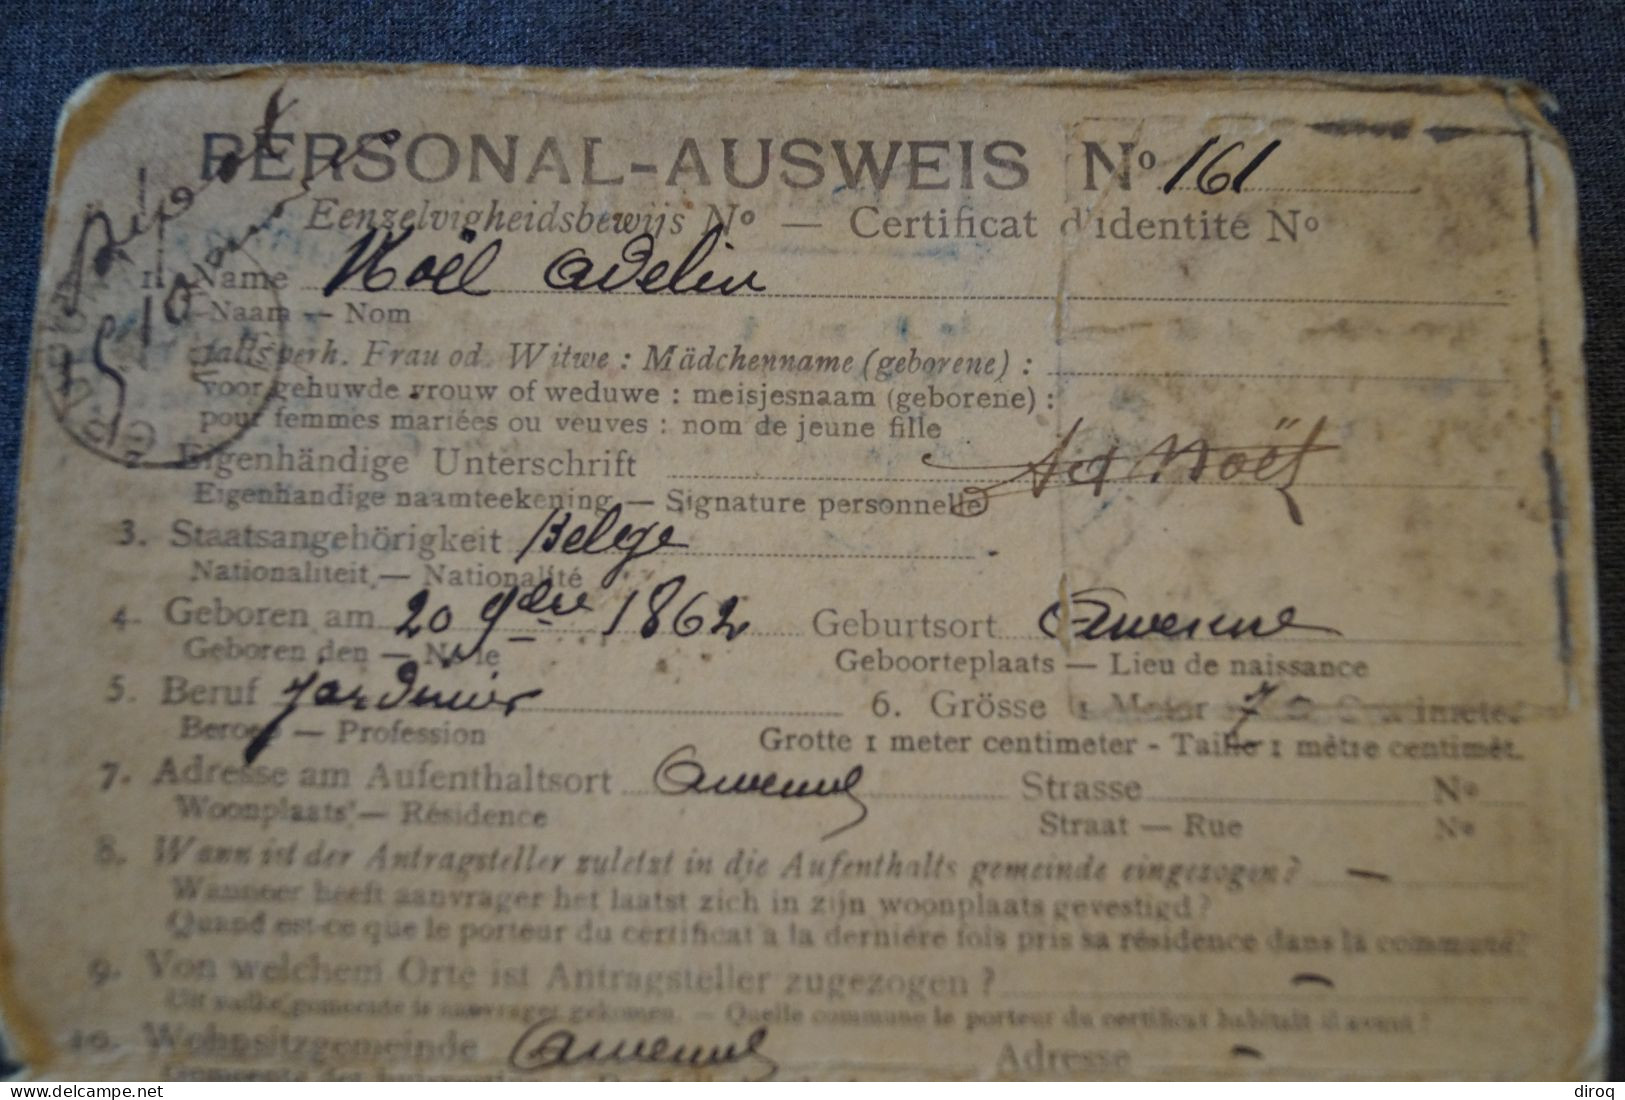 PERSONAL-AUSWEIS No 161
Eenzelvigheidsbewijs No — Certificat d'identité No
1. Name Noël Adelin
Naam — Nom
falls verh. Frau od. Witwe : Mädchenname (geborene) :
voor gehuwde vrouw of weduwe : meisjesnaam (geborene) :
pour femmes mariées ou veuves : nom de jeune fille
2. Eigenhändige Unterschrift Ad Noël
Eigenhandige naamteekening — Signature personnelle
3. Staatsangehörigkeit Belge
Nationaliteit — Nationalité
4. Geboren am 20 9bre 1862 Geburtsort
Geboren den — Né le Geboorteplaats — Lieu de naissance
5. Beruf Jardinier 6. Grösse 1 Meter 70 Centimeter
Beroep — Profession Grotte 1 meter centimeter - Taille 1 mètre centimèt.
7. Adresse am Aufenthaltsort Strasse No
Woonplaats — Résidence Straat — Rue No
8. Wann ist der Antragsteller zuletzt in die Aufenthalts gemeinde eingezogen? —
Wanneer heeft aanvrager het laatst zich in zijn woonplaats gevestigd ?
Quand est-ce que le porteur du certificat a la dernière fois pris sa résidence dans la commune?
9. Von welchem Orte ist Antragsteller zugezogen ? —
Uit welke gemeente is aanvrager gekomen. — Quelle commune le porteur du certificat habitait il avant ?
10. Wohnsitzgemeinde Adresse —
diroq